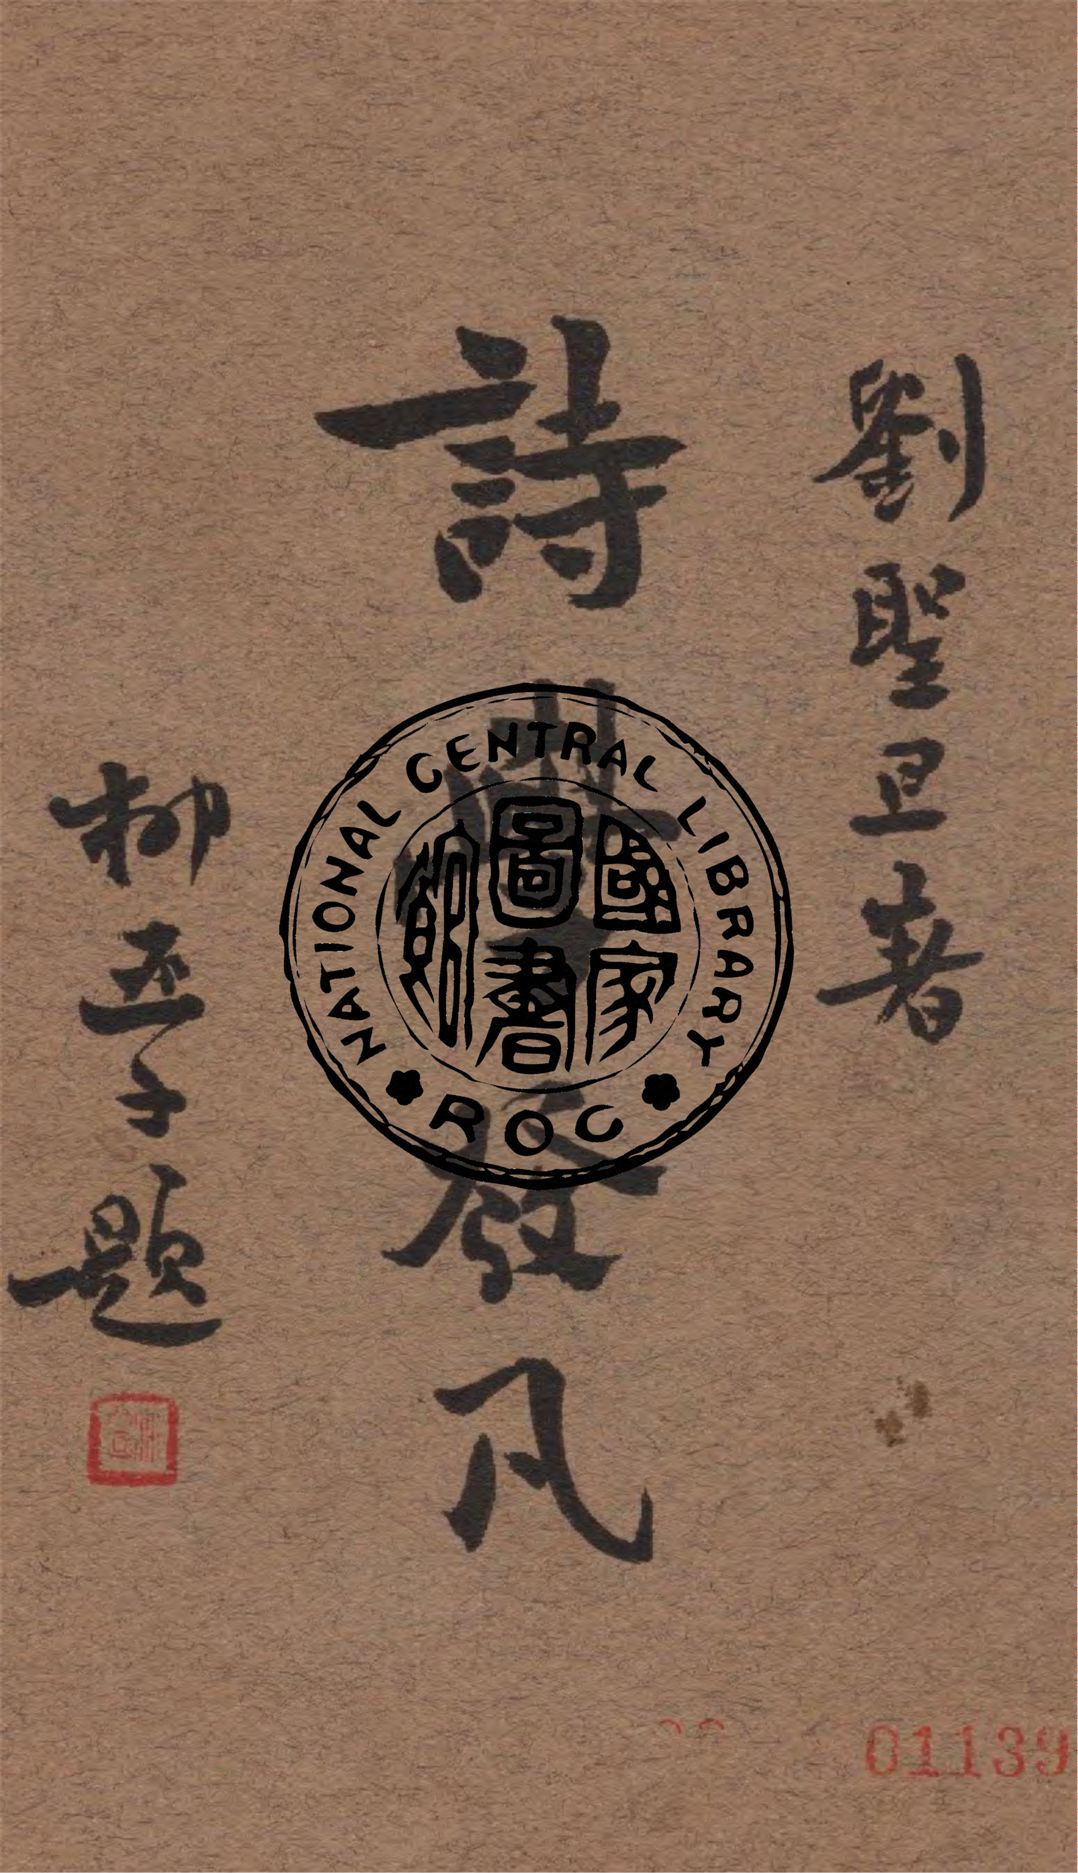 劉聖旦著
詩學發凡
柳亞子題
NATIONAL CENTRAL LIBRARY
國家圖書館
ROC
01139